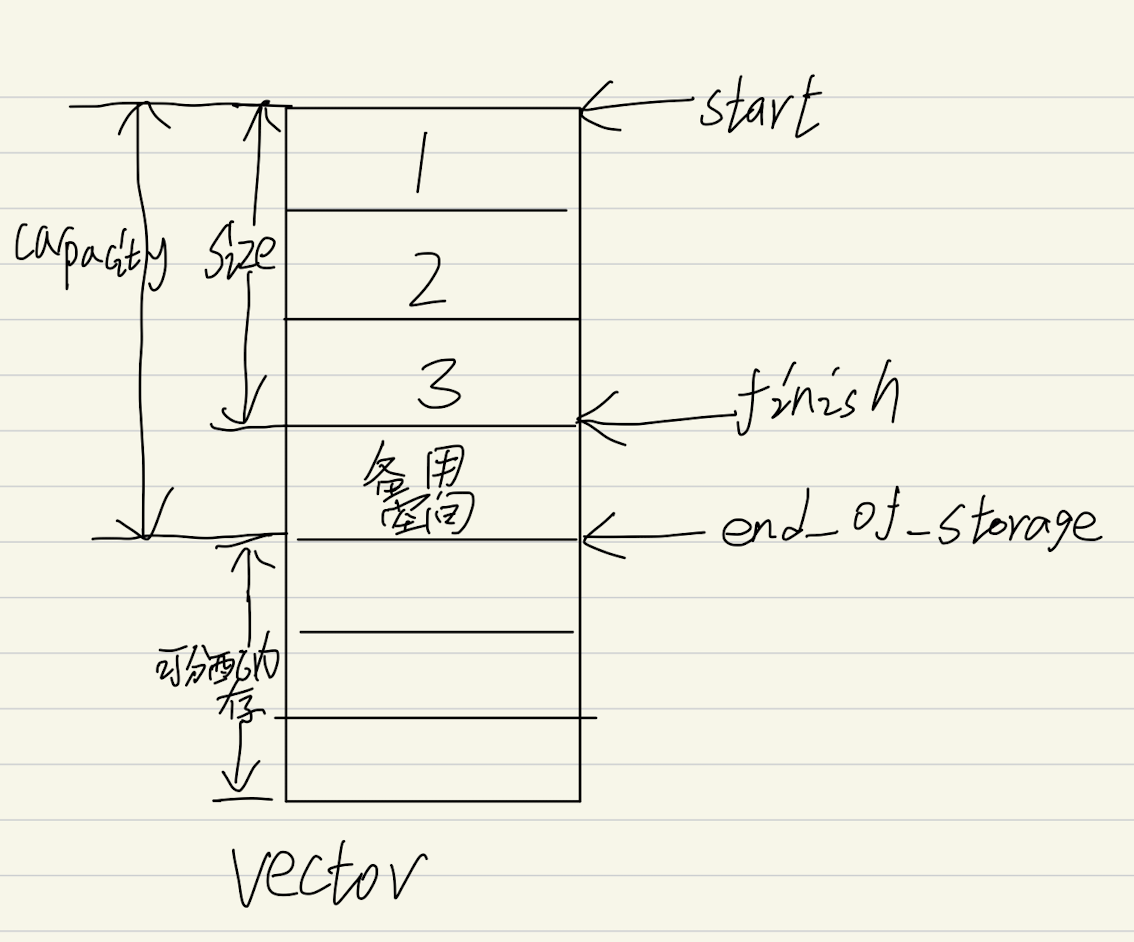 start
1
capacity
size
2
3
finish
备用
空间
end_of_storage
可分配内
存
vector